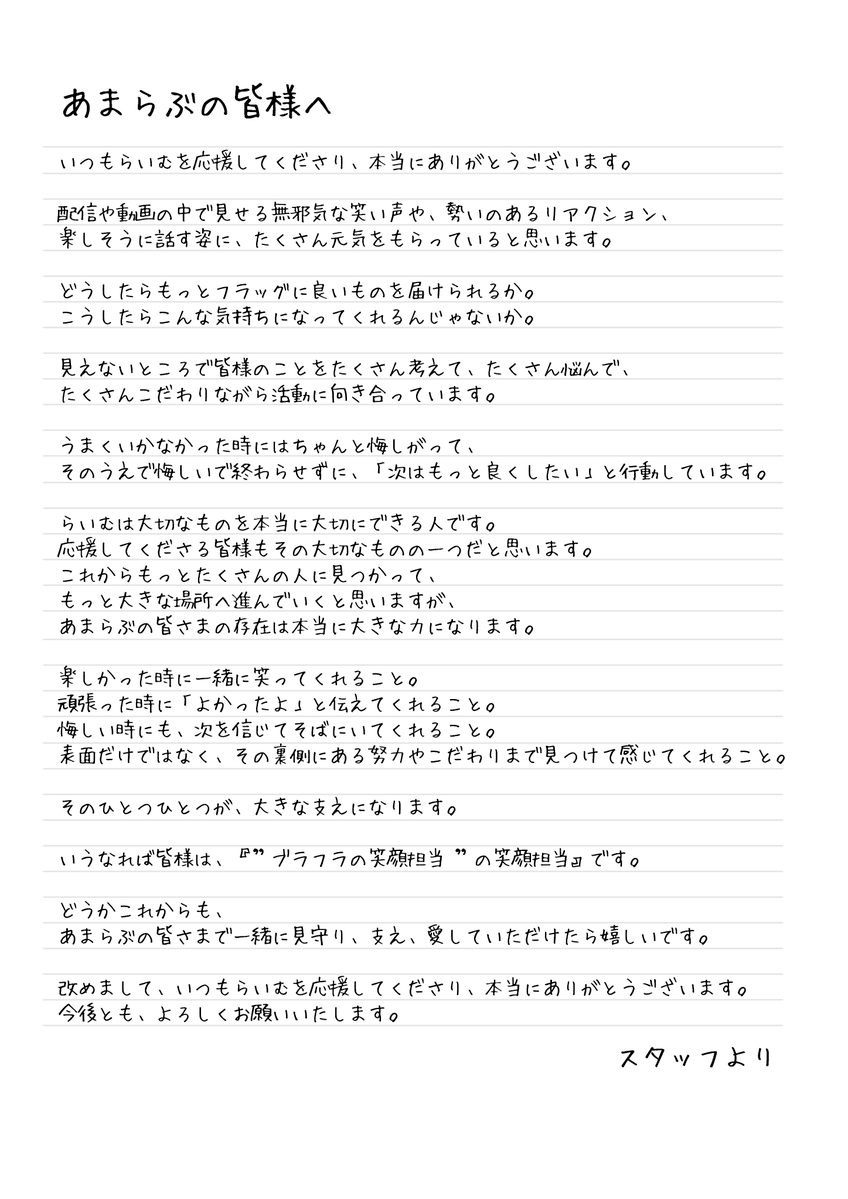 あまらぶの皆様へ
いつもらいむを応援してくださり、本当にありがとうございます。
配信や動画の中で見せる無邪気な笑い声や、勢いのあるリアクション、
楽しそうに話す姿に、たくさん元気をもらっていると思います。
どうしたらもっとフラッグに良いものを届けられるか。
こうしたらこんな気持ちになってくれるんじゃないか。
見えないところで皆様のことをたくさん考えて、たくさん悩んで、
たくさんこだわりながら活動に向き合っています。
うまくいかなかった時にはちゃんと悔しがって、
そのうえで悔しいで終わらせずに、「次はもっと良くしたい」と行動しています。
らいむは大切なものを本当に大切にできる人です。
応援してくださる皆様もその大切なものの一つだと思います。
これからもっとたくさんの人に見つかって、
もっと大きな場所へ進んでいくと思いますが、
あまらぶの皆さまの存在は本当に大きな力になります。
楽しかった時に一緒に笑ってくれること。
頑張った時に「よかったよ」と伝えてくれること。
悔しい時にも、次を信じてそばにいてくれること。
表面だけではなく、その裏側にある努力やこだわりまで見つけて感じてくれること。
そのひとつひとつが、大きな支えになります。
いうなれば皆様は、『”ブラフラの笑顔担当 ”の笑顔担当』です。
どうかこれからも、
あまらぶの皆さまで一緒に見守り、支え、愛していただけたら嬉しいです。
改めまして、いつもらいむを応援してくださり、本当にありがとうございます。
今後とも、よろしくお願いいたします。
スタッフより